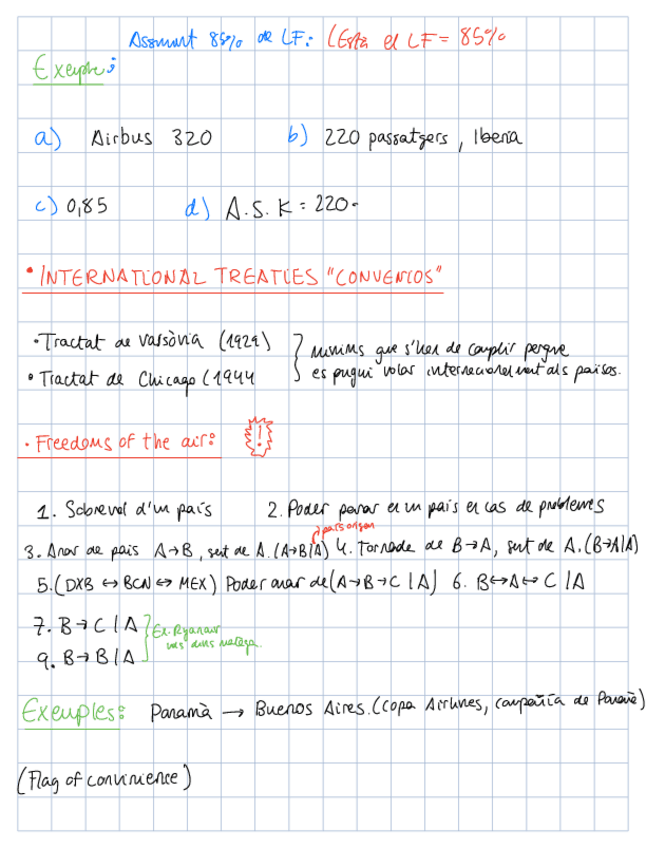 Assumint 85% de LF: (Està el LF = 85%
Exemple:
a) Airbus 320 b) 220 passatgers, Iberia
c) 0,85 d) A.S.K = 220·
• INTERNATIONAL TREATIES "CONVENIOS"
• Tractat de Varsòvia (1929) } minims que s'han de complir perque
• Tractat de Chicago (1944 es pugui volar internacionalment als països.
• Freedoms of the air: !
1. Sobrevol d'un país 2. Poder parar en un país en cas de problemes
país origen
3. Anar de país A→B, sent de A. (A→B|A) 4. Tornada de B→A, sent de A. (B→A|A)
5. (DXB ↔ BCN ↔ MEX) Poder anar de (A→B→C | A) 6. B↔A↔C | A
7. B→C | A } Ex. Ryanair
9. B→B | A
Exemples: Panamà → Buenos Aires. (Copa Airlines, compañía de Panamà)
(Flag of convinience)